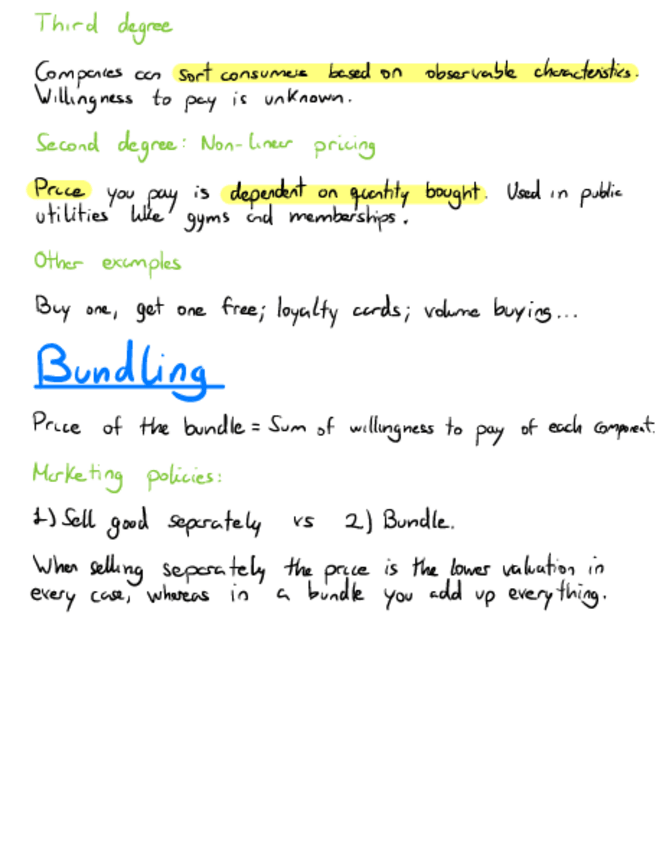 Third degree
Companies can sort consumers based on observable characteristics.
Willingness to pay is unknown.
Second degree: Non-linear pricing
Price you pay is dependent on quantity bought. Used in public
utilities like gyms and memberships.
Other examples
Buy one, get one free; loyalty cards; volume buying...
Bundling
Price of the bundle = Sum of willingness to pay of each component.
Marketing policies:
1) Sell good separately vs 2) Bundle.
When selling separately the price is the lower valuation in
every case, whereas in a bundle you add up everything.